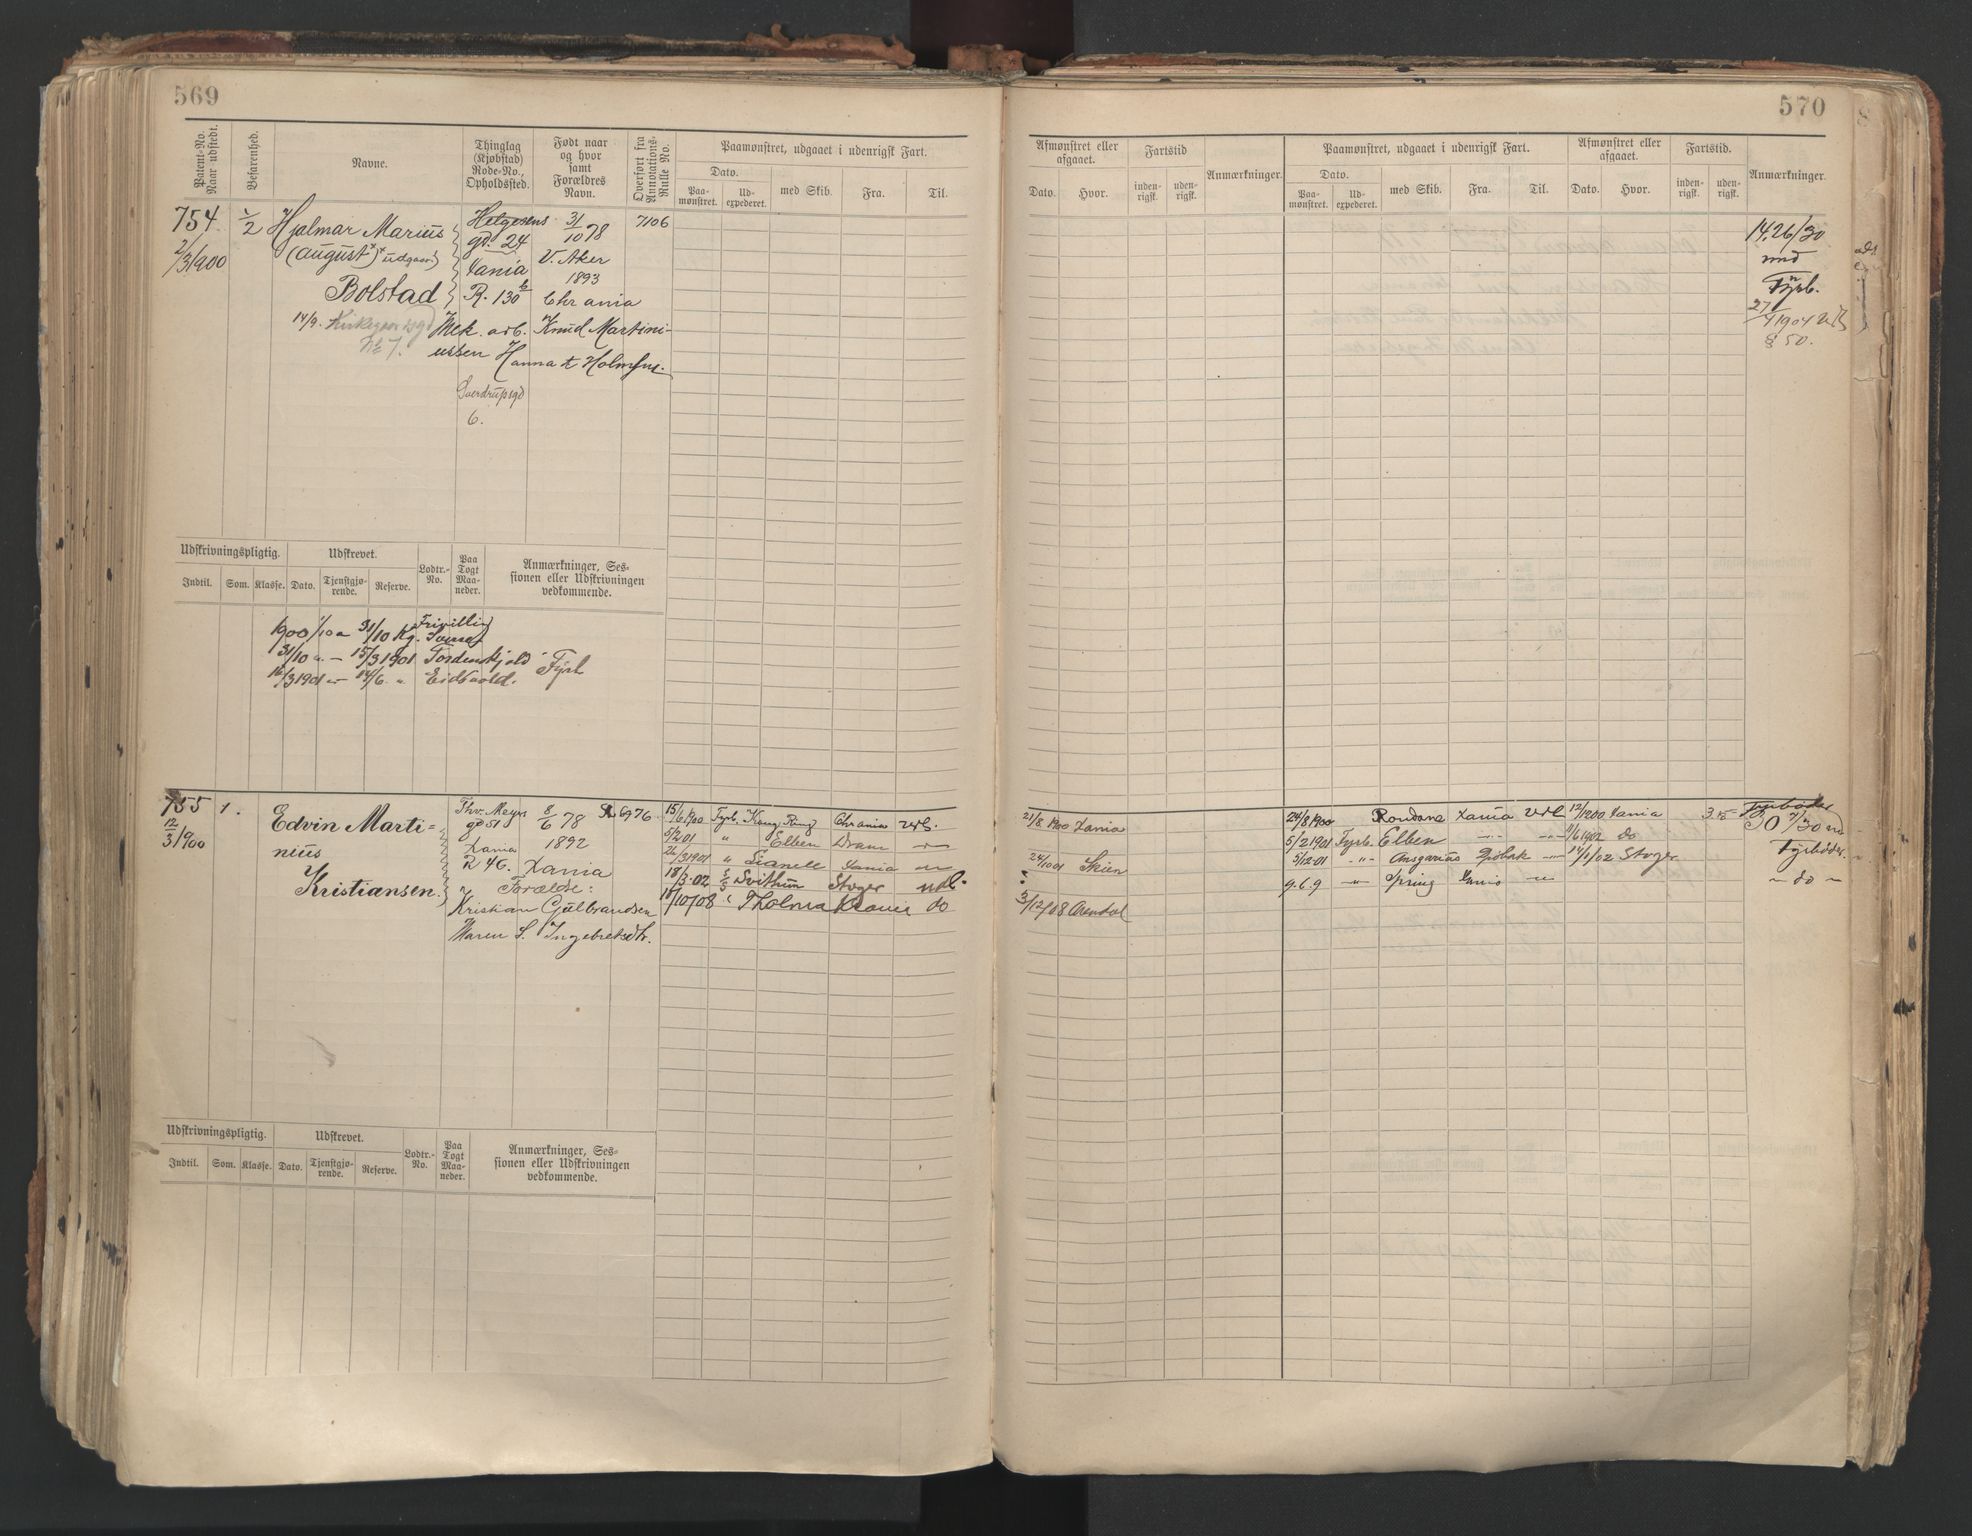 569
Patent-No. Naar udstedt.
Befarenhed.
Navne.
Thinglag (Kjøbstad) Rode-No., Opholdssted.
Født naar og hvor samt Forældres Navn.
Overført fra Annotations-Rulle No.
Paamønstret, udgaaet i udenrigsk Fart.
Dato.
Paamønstret.
Udexpederet.
med Skib.
Fra:
Til.
754
2/3 1900
1/2
Hjalmar Marius
(August)* *udgaar)
Bolstad
14/9.
No 7.
Helgesens
gd. 24
Xania
R. 130 b
Mek. arb.
Sverdrupsgd
6.
31/10 78
V. Aker
1893
Chrania
Knud Martini-
ussen Hanna
7106
Udskrivningspligtig.
Udskrevet.
Lodtr.-No.
Paa Togt Maaneder.
Anmærkninger, Sessionen eller Udskrivningen vedkommende.
Indtil.
Som.
Klasse.
Dato.
Tjenstgjørende.
Reserve.
Frivillig
1900 1/10 a 31/10 Kg. Sverre
31/10 a. — 15/3 1901 Tordenskjold
16/3 1901 — 14/6. " Eidsvold.
Fyrb
755
12/3 1900
1.
Edvin Marti=
nius
Kristiansen.
Thv. Meyers
gd 51
Xania
R 46. Xania
Forældre:
Kristian Gulbrandsen
Maren S. Ingebretsdtr.
8/6 78
1892
6976
15/6 1900 Fyrb. Kong Ring Chrania udl.
5/2 01 " Elben Dram —"—
/3 1901 " Xania —"—
18/3 02 Svithun Stvger udl.
10/10/08 " Tholma Krania do
Udskrivningspligtig.
Udskrevet.
Lodtr.-No.
Paa Togt Maaneder.
Anmærkninger, Sessionen eller Udskrivningen vedkommende.
Indtil.
Som.
Klasse.
Dato.
Tjenstgjørende.
Reserve.
570
Afmønstret eller afgaaet.
Fartstid
Anmærkninger.
Paamønstret, udgaaet i udenrigsk Fart.
Afmønstret eller afgaaet.
Fartstid.
Anmærkninger.
Dato.
Hvor.
indenrigsk.
udenrigsk.
Dato.
Paamønstret.
Udexpederet.
med Skib.
Fra.
Til.
Dato.
Hvor.
indenrigsk.
udenrigsk.
14,26/30
md
Fyrb.
27/4 1904
§ 50.
21/8. 1900 Xania
24/10 01 Skien
3/12/08 Arendal
24/8 1900 Rondane Xania Udl 12/12 00 Xania
5/2 1901 Fyrb. Elben —"— —"— 11/6 1902 do
5/12-01 —"— Ansgarius Drøbak —"— 14/1/02 Stvger
9.6.9 —"— Spring Xania —"—
3.15
Fyrbøder
30 7/30 md
Fyrbøder
— do —